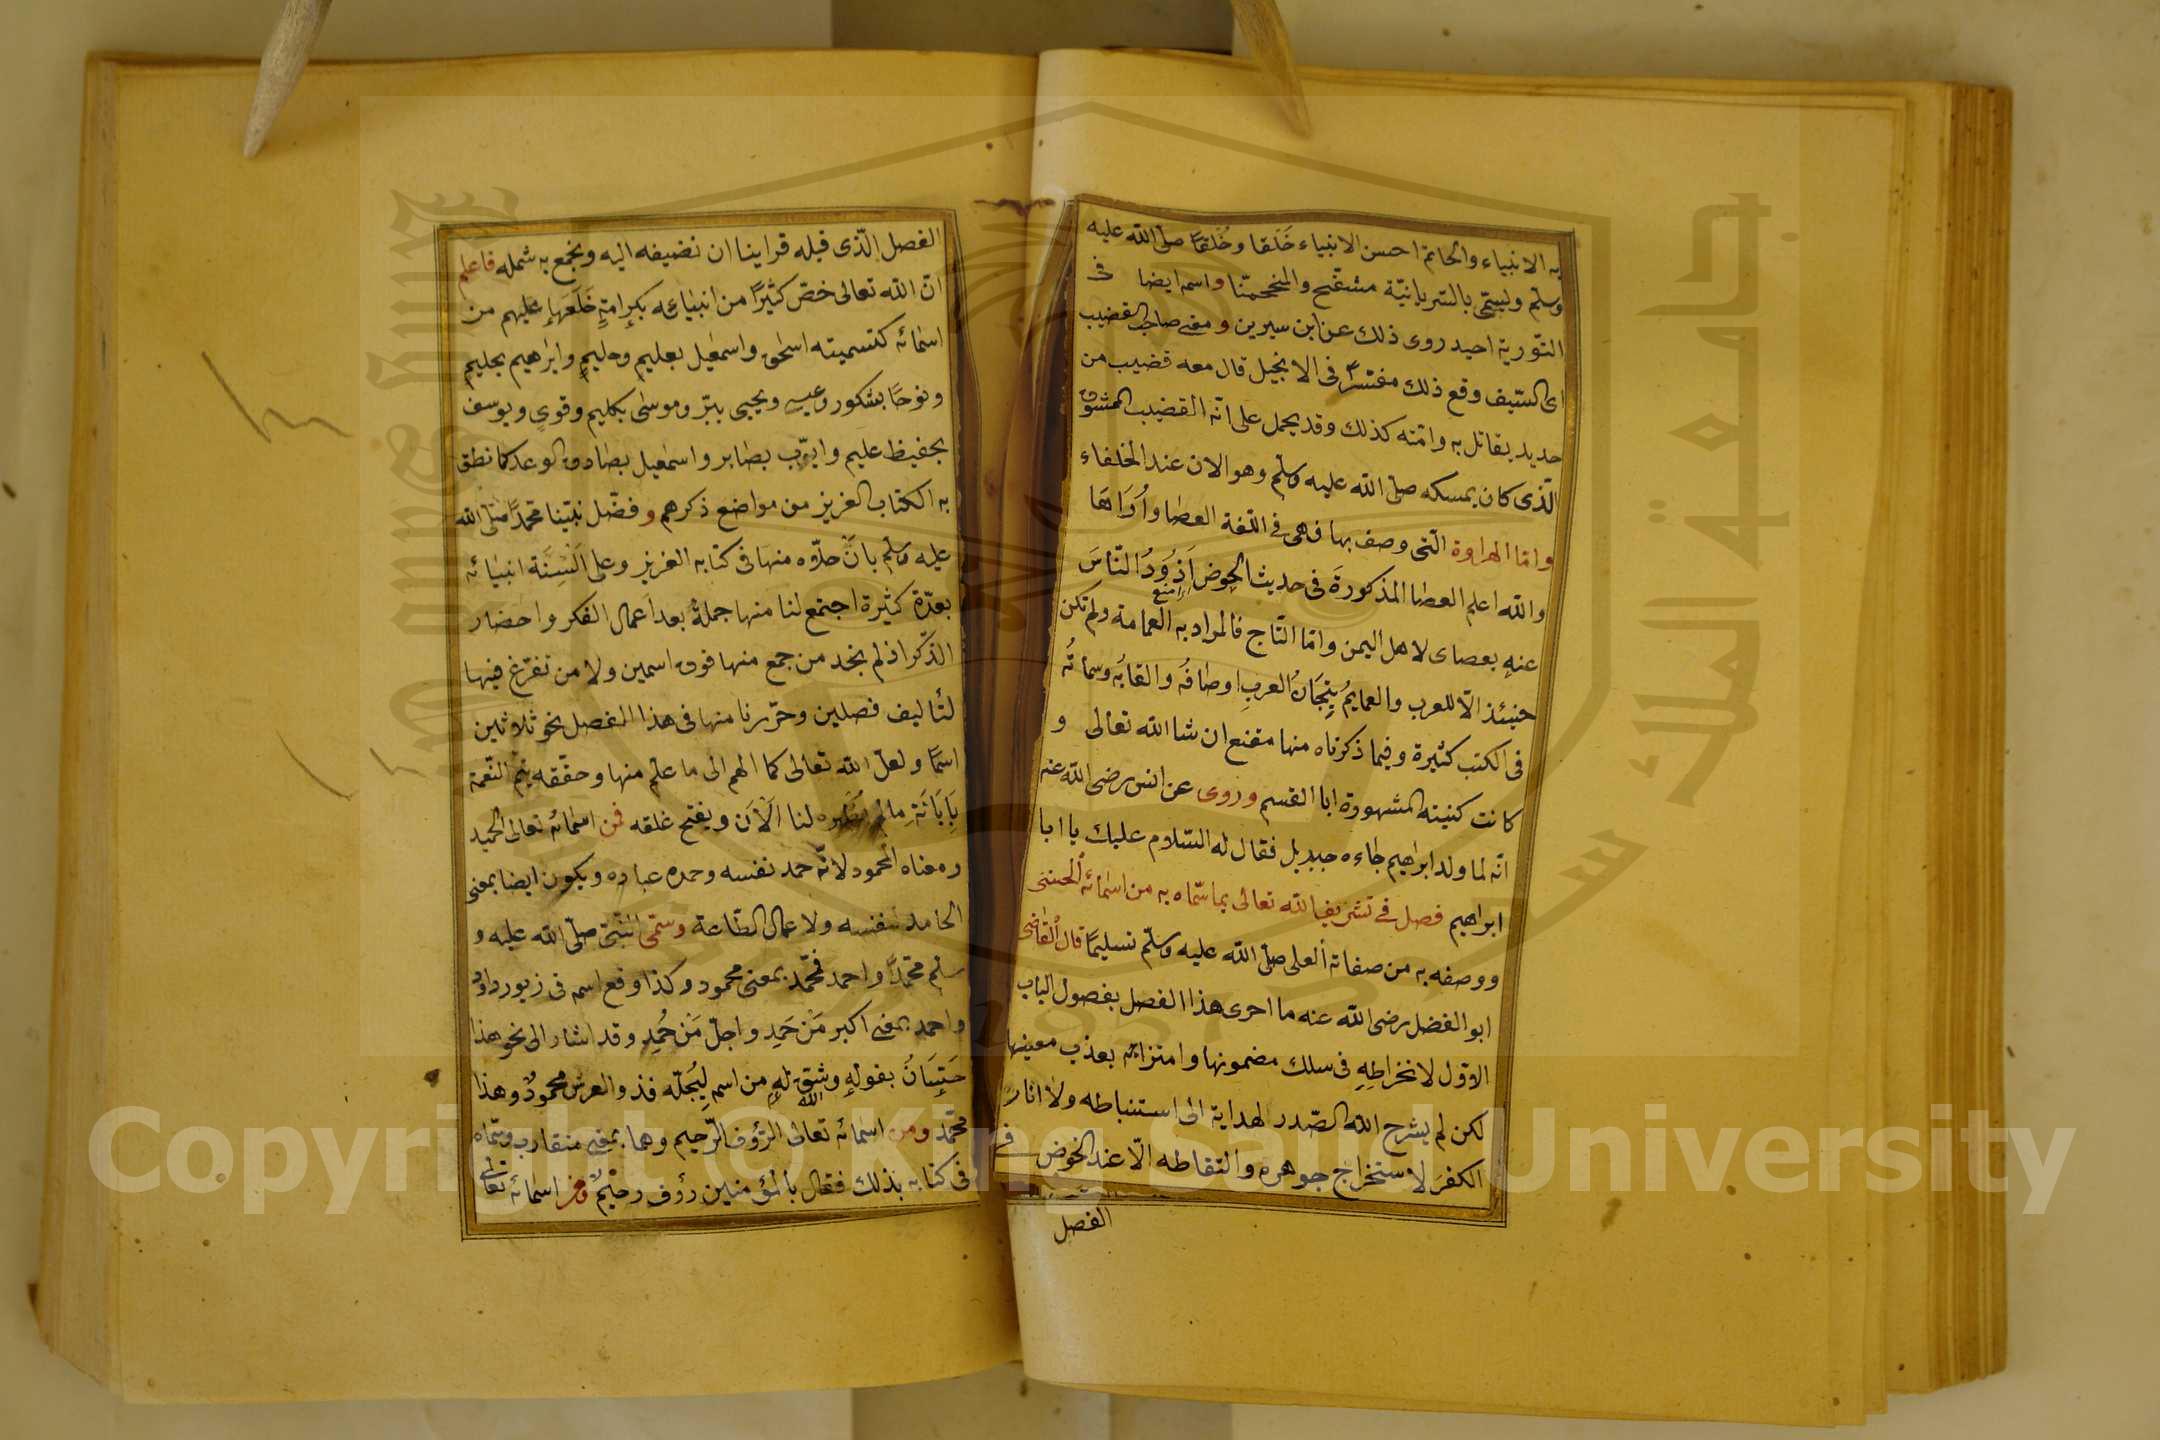 به الانبياء والخاتم احسن الانبياء خَلقا وخُلُقًا صلّى الله عليه
وسلّم ويسمّى بالسريانيّة مشفّح والمنحمنّا واسمه ايضا فى
التّورية احيد روى ذلك عن ابن سيرين ومعنى صاحب القضيب
اى السّيف وقع ذلك مفسّرً فى الانجيل قال معه قضيب من
حديد يقاتل به وامّته كذلك وقد يحمل على انّه القضيب الممشوق
الّذى كان يمسكه صلّى الله عليه وسلّم وهو الان عند الخلفاء
وامّا الهراوة الّتى وصف بها فهى فى اللّغة العصا وأُرَاهَا
والله اعلم العصا المذكورة فى حديث الحوض اَذُودُ النّاسَ
امنع
عنه بعصاى لاهل اليمن وامّا التّاج فالمراد به العمامة ولم تكن
حينئذ الّا للعرب والعمايمُ تِيجَانُ العرب اوصافُه والقابُه وسماتُه
فى الكتب كثيرة وفيما ذكرناه منها مقنع ان شا الله تعالى و
كانت كنيته المشهورة ابا القسم وروى عن انس رضى الله عنه
انّه لما ولد ابراهيم جاءه جبريل فقال له السّلام عليك يا ابا
ابراهيم فصل فى تشريف الله تعالى بما سمّاه به من اسمائه الحسنى
ووصفه به من صفاته العلى صلّى الله عليه وسلّم تسليمًا قال القاضى
ابو الفضل رضى الله عنه ما احرى هذا الفصل بفصول الباب
الاوّل لانخراطه فى سلك مضمونها وامتزاجه بعذب معينها
لكن لم يشرح الله الصّدر لهداية الى استنباطه ولا انار
الكفر لاستخراج جوهره والتقاطه الّا عند الخوض فى
الفصل
الفصل الّذى قبله فراينا ان نضيفه اليه ونجمع به شمله فاعلم
انّ الله تعالى خصّ كثيرًا من انبيائه بكرامةٍ خَلَعَها عليهم من
اسمائه كتسميته اسحق واسمعيل بعليم وحليم وابراهيم بحليم
ونوحًا بشكور وعيسى ويحيى ببرّ وموسى بكليم وقوى ويوسف
بحفيظ عليم وايوّب بصابر واسمعيل بصادق الوعد كما نطق
به الكتاب العزيز من مواضع ذكرهم وفضّل نبيّنا محمّدًا صلّى الله
عليه وسلّم بان حلّاه منها فى كتابه العزيز وعلى اَلْسِنَة انبيائه
بعدّة كثيرة اجتمع لنا منها جملةٌ بعد اعمال الفكر واحضار
الذّكر اذ لم نجد من جمع منها فوق اسمين ولا من تفرّغ فيها
لتأليف فصلين وحرّرنا منها فى هذا الفصل نحو ثلاثين
اسمًا ولعلّ الله تعالى كما الهم الى ما علّم منها وحقّقه يتمّ النّعمة
بِاِبَانَةِ مالم يُظهره لنا الآن ويفتح غلقه فمن اسمائه تعالى الحميد
ومعناه المحمود لانّه حمد نفسه وحمده عباده ويكون ايضا بمعنى
الحامد لنفسه ولاعمال الطّاعة وسمّى النّبىّ صلّى الله عليه و
سلم محمّدًا واحمد فمحمّد بمعنى محمود وكذا وقع اسمه فى زبور داود
واحمد بمعنى اكبر مَنْ حَمِد واجلّ مَنْ حُمِد وقد اشار الى نحو هذا
حَسَّانُ بقوله وشقّ له من اسمه لِيُجلّه فذو العرش محمودٌ وهذا
الله
محمّد ومن اسمائه تعالى الرّؤف الرّحيم وهما بمعنى متقارب وسمّاه
فى كتابه بذلك فقال بالمؤمنين رؤف رحيمٌ ومن اسمائه تعالى
Copyright © King Saud University
جامعة الملك سعود